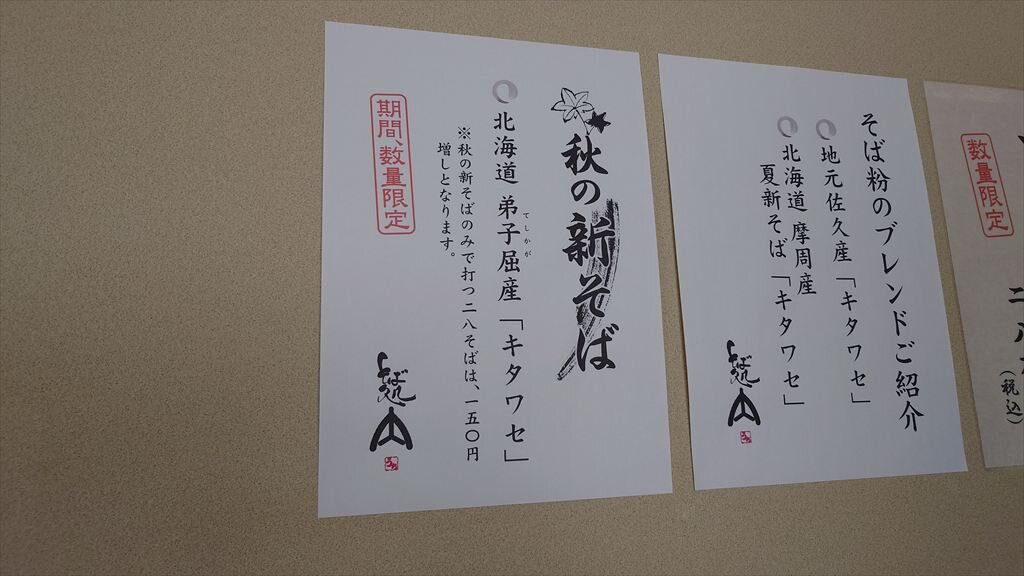 秋の新そば
北海道 弟子屈産「キタワセ」
てしかが
※秋の新そばのみで打つ二八そばは、一五〇円
増しとなります。
期間、数量限定
そば処
そば粉のブレンドご紹介
地元佐久産「キタワセ」
北海道 摩周産
夏新そば「キタワセ」
そば処
数量限定
二八
(税込)